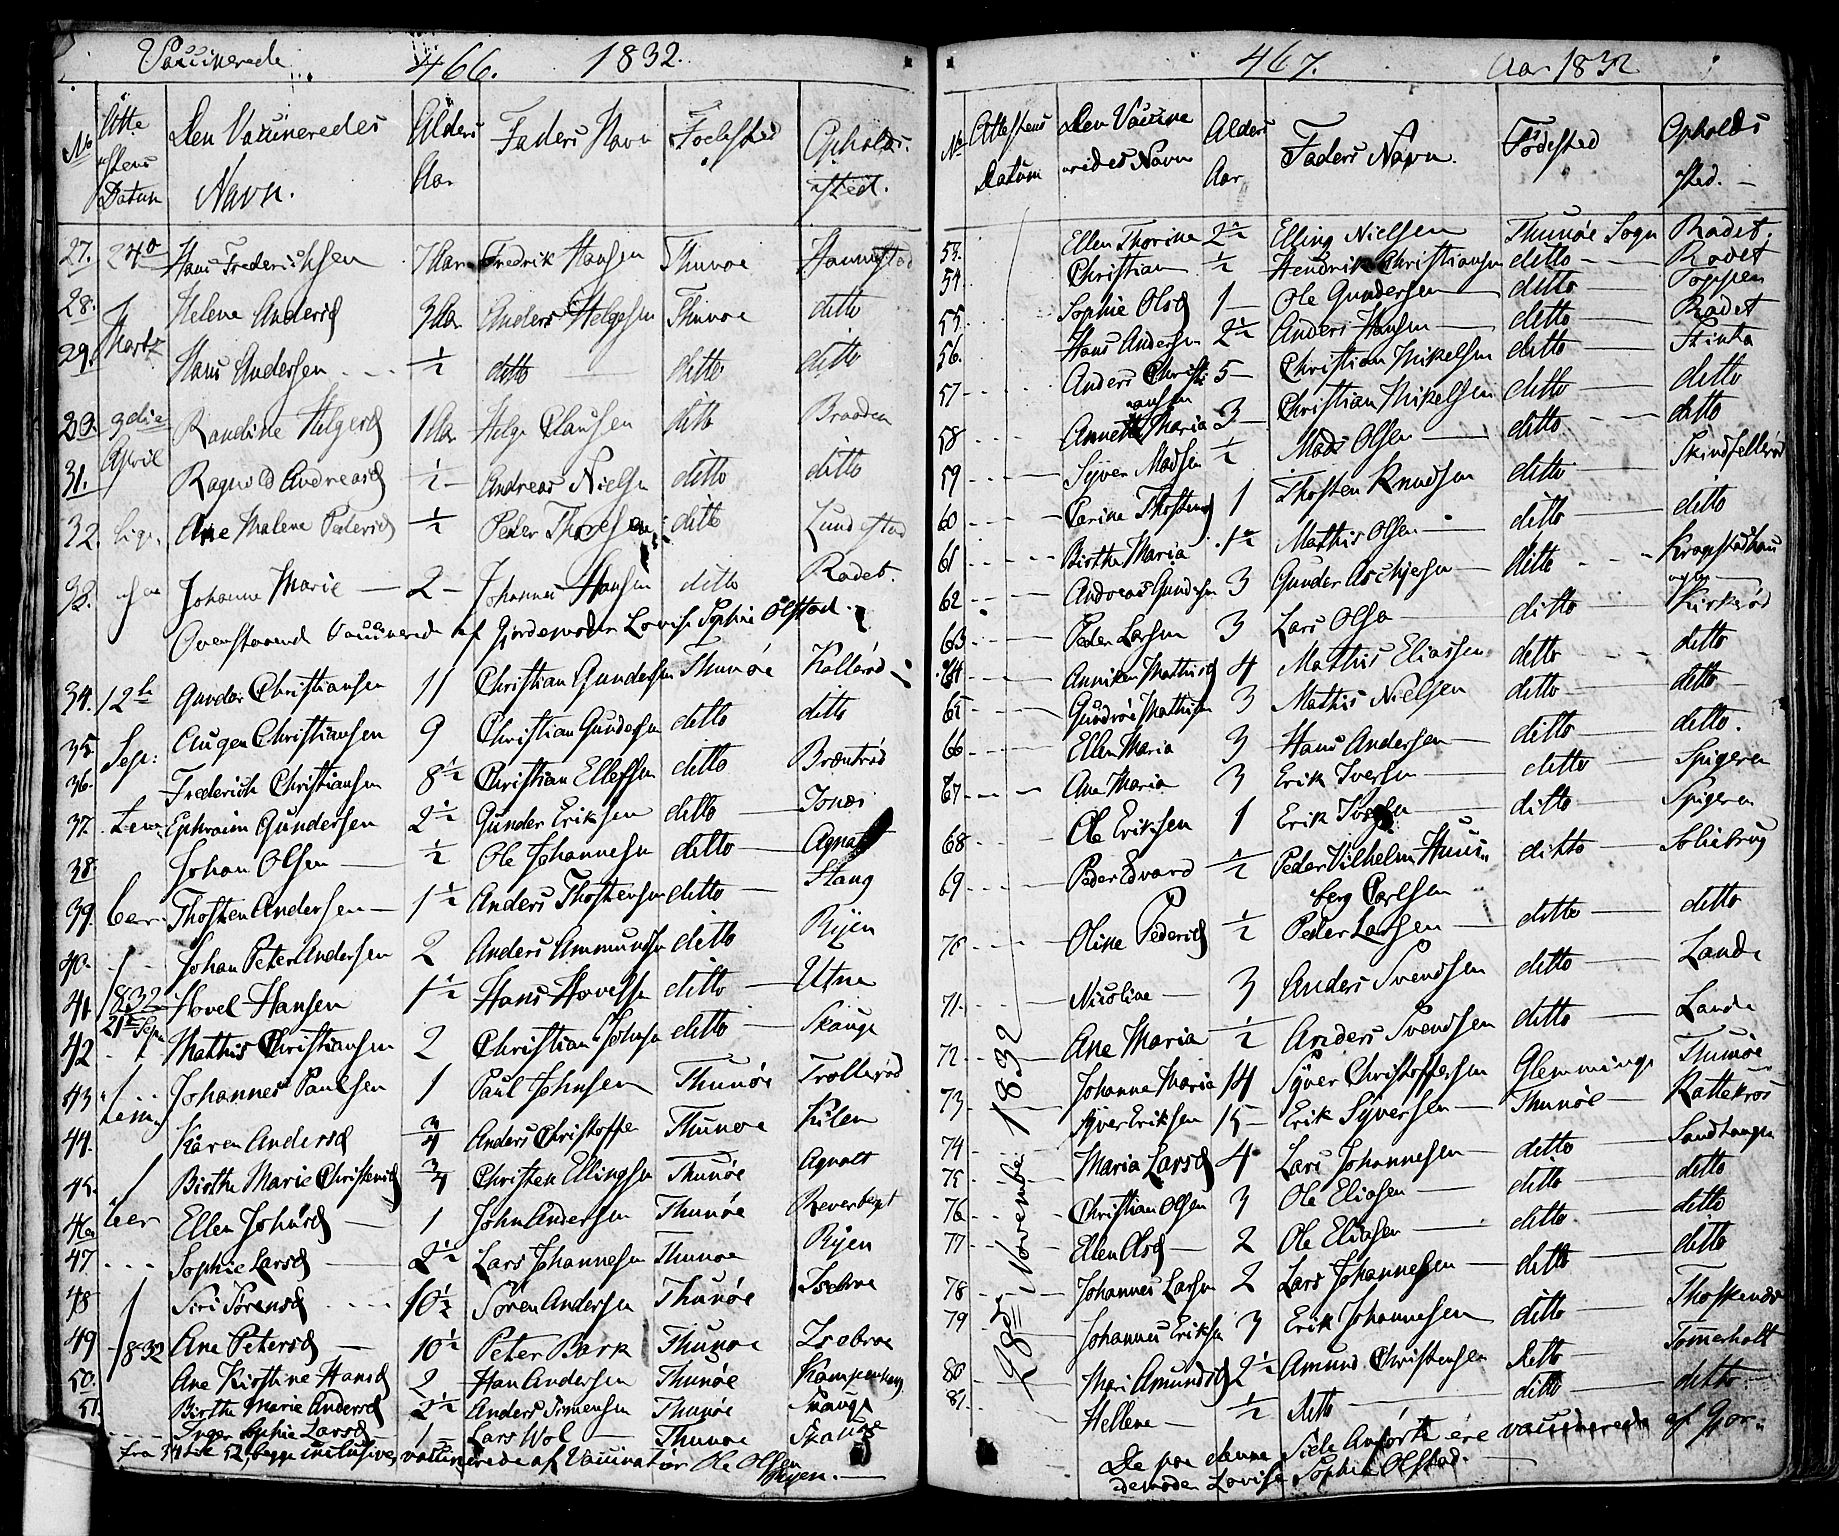 Vaccinerede 466. 1832.
No Atte stens Datum Den Vaccineredes Navn. Alders Aar Faders Navn Fødested Opholds sted.
27. 24de Hans Frederichsen 7 Aar Fredrik Hansen Thunøe Hannestad
28. Marts Helene Andersd 3 Aar Anders Helgesen Thunøe ditto
29. Hans Andersen ½ ditto ditto ditto
30. 3die Randine Helgesd 1 Aar Helge Clausen ditto Braaden
31. April Ragnild Andreasd ½ Andreas Nielsen ditto ditto
32. Ane Malene Pedersd ½ Peder Thoresen ditto Lundestad
33. Johanne Marie 2 Johannes Hansen ditto Rødet.
Ovenstaaende Vaccinerede af Gjordemoder Lovise Sophie Olstad.
34. 12te Gunder Christiansen 11 Christian Gundersen Thunøe Kallerød
35. Sep: Augen Christiansen 9 Christian Gundersen ditto ditto
36. Frederich Christiansen 8½ Christian Ellefsen ditto Bræntrød
37. tem Ephraim Gundersen 2½ Gunder Eriksen ditto
38. Johan Olsen ½ Ole Johannesen ditto Agnalt
39. ber. Thosten Andersen 1½ Anders Thostensen ditto Stang
40. Johan Peter Andersen 2 Anders Ammundsen ditto Rijen
41. 1832 Hovel Hansen 1½ Hans Hovelsen ditto Utne
42 21de Sep Mathis Christiansen 2 Christian Johnsen ditto Skauge
43 Johannes Paulsen 1 Paul Johnsen Thunøe Trollerød
44. Karen Andersd ¾ Anders Christoffe Thunøe Kilen
45. Birthe Marie Christensd ¾ Christen Ellingsen Thunøe Agnalt
46 ber Ellen Johnsd 1 John Andersen Thunøe
47 Sophie Larsd 2½ Lars Johannesen Thunøe Rijen
48 Siri Sørensd 10½ Søren Andersen Thunøe Isebroe
49 1832 Ane Petersd 10½ Peter Bark Thunøe Isebroe
50. Ane Kirstine Hansd 2 Han Andersen Thunøe
51 Birthe Marie Andersd 2½ Anders Simensen Thunøe Skauge
Inger Sophie Larsd 1 Lars Wol Thunøe Skauge
fra 34 til 52, begge inclusive, vaccinerede af Vaccinatør Ole Olsen
Rijen.
467. Aar 1832
No Attestens Datum Den Vaccine redes Navn Alders Aar Faders Navn. Fødested Opholds sted.
53. Ellen Thorine 2½ Elling Nielsen Thunøe Sogn Rødet.
54. Christian ½ Hendrik Christiansen ditto Rødet
55. Sophie Olsd 1 Ole Gundersen ditto Toppen
56. Hans Andersen 2½ Anders Hansen ditto Rødet
57 Anders Christiansen 5 Christian Mikelsen ditto
58 Annette Maria 3 Christian Mikelsen ditto ditto
59 Syver Madsen ½ Mads Olsen ditto ditto
60 Carine Thostensd 1 Thosten Knudsen ditto Skindfellerød
61 Birthe Maria 1½ Mathis Olsen ditto ditto
62 Andreas Gundersen 3 Gunder Aschjesen ditto
63 Peder Larsen 3 Lars Olsen ditto Kirkerød
64 Anniken Mathisd 4 Mathis Eliassen ditto ditto
65 Gundroe Mathisen 3 Mathis Nielsen ditto ditto
66 Ellen Maria 3 Hans Andersen ditto ditto.
67 Ane Maria 3 Erik Iversen ditto Spigeren
68 Ole Eriksen 1 Erik ditto Spigeren
69 Peder Edvard ½ Peder Vilhelm Huus berg Carlsen ditto Soliebrug
70 Oline Pedersd ½ Peder Larsen ditto ditto
71. Nicoline 3 Anders Svendsen ditto Lande
72 Ane Maria ½ Anders Svendsen ditto Lande
73 Johanne Maria 14 Syver Christoffersen Glemminge Thunøe
74 Syver Eriksen 15 Erik Syversen Thunøe Rottekros
75 Maria Larsd 4 Lars Johannesen ditto Sandtangen
76 Christian Olsen 3 Ole Eliasen ditto ditto
77 Ellen Olsd 2 Ole Eliasen ditto ditto
78 Johannes Larsen 2 Lars Johannesen ditto ditto
79 Johannes Eriksen 3 Erik Johannesen ditto
80 Mari Amundsd 2½ Amund Christensen ditto Tomerholt
81 Hellene ½ ditto ditto ditto
28de November 1832
De paa denne Side Anførte ere vaccinerede af Gjor-
demoder Lovise Sophie Olstad.